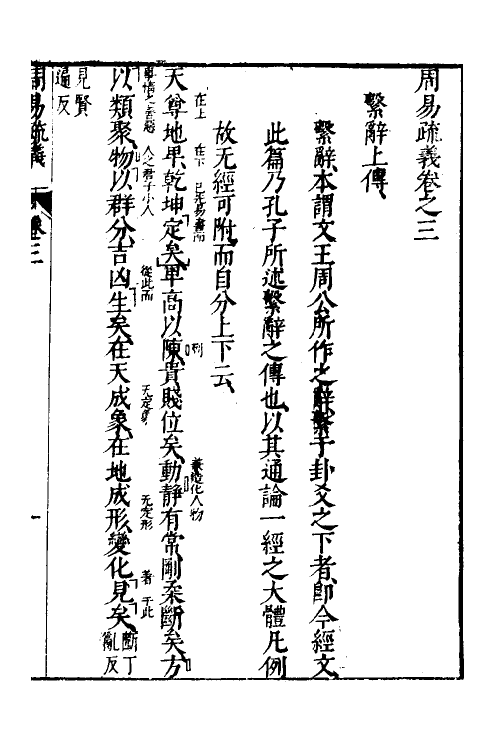 周易疏義卷之三
繫辭上傳
繫辭本謂文王周公所作之辭繫于卦爻之下者即今經文
此篇乃孔子所述繫辭之傳也以其通論一經之大體凡例
故无經可附而自分上下云
天尊地卑乾坤定矣卑高以陳貴賤位矣動靜有常剛柔斷矣方
在上 在下 列 兼造化人物
以類聚物以群分吉凶生矣在天成象在地成形變化見矣斷丁亂反
人之君子小人 從此而 无定形 著 于此
見賢遍反
周易疏義 卷三 一